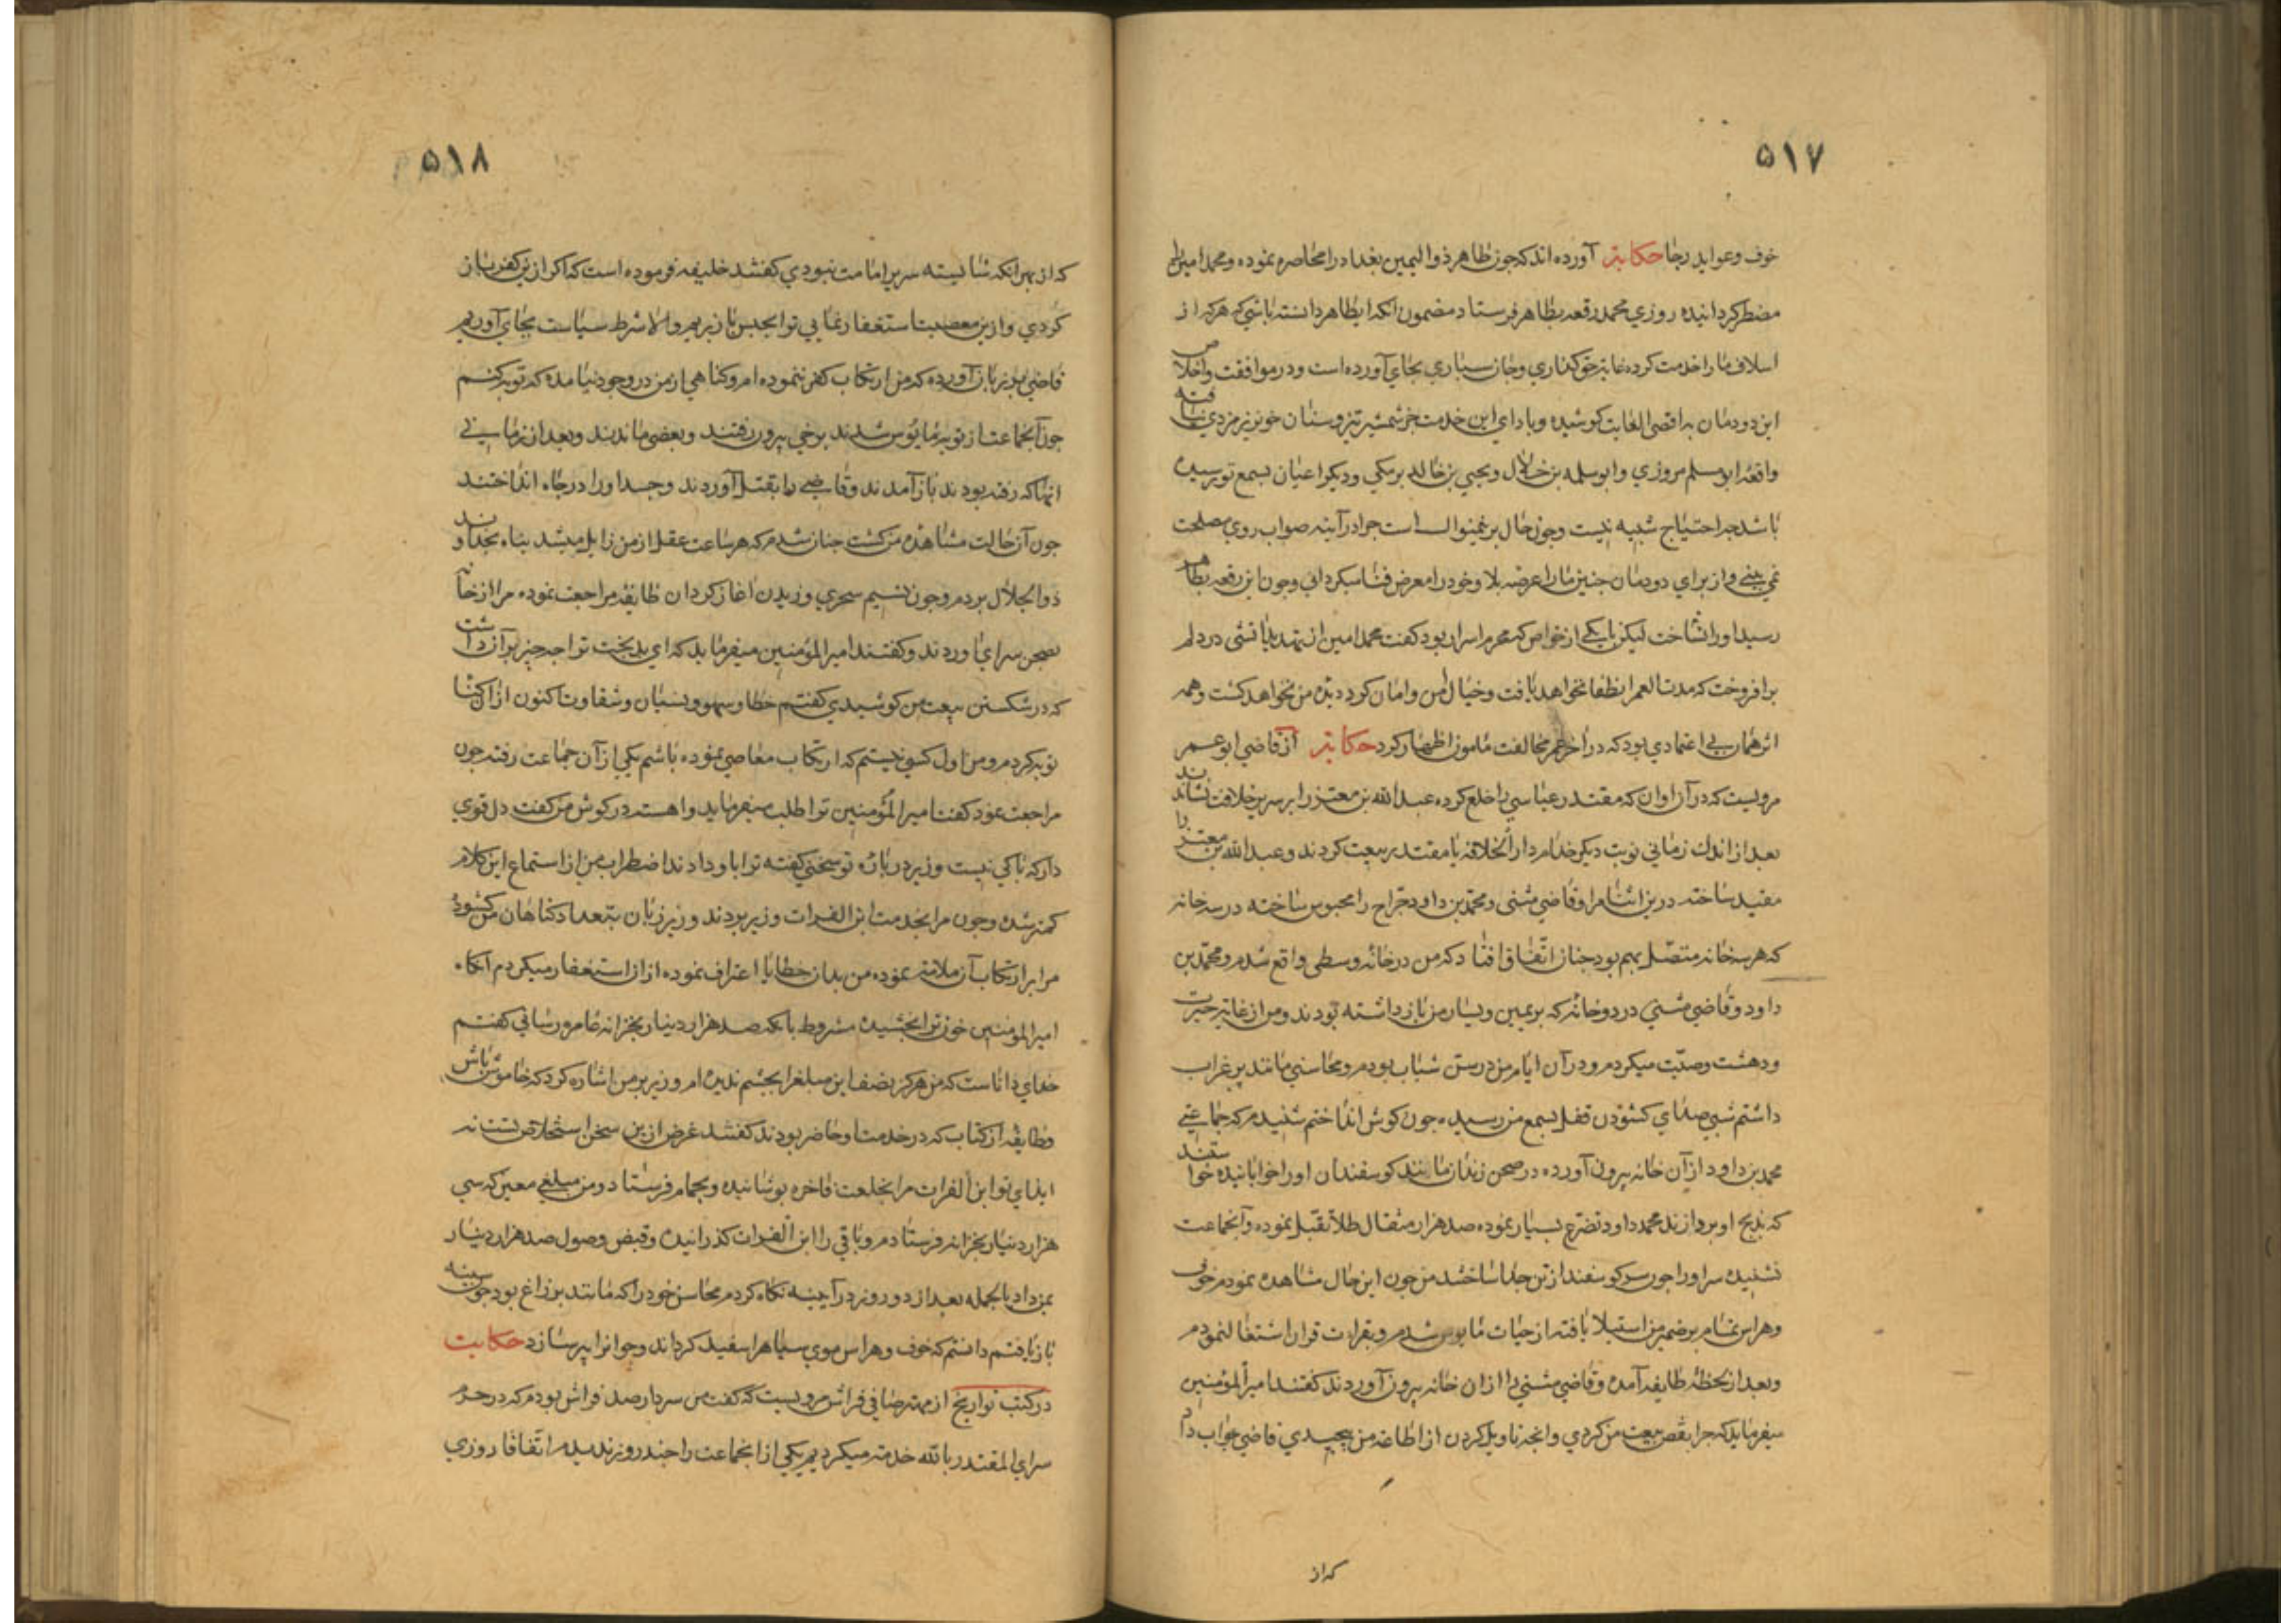 ۵۱۷
خوف و عواید رجا حکایتر آورده اند که جون طاهر ذوالیمین بغداد را محاصره نموده و محمد امین را
مضطر کردانیده روزی محمد رقعه بطاهر فرستاد مضمون انکه ایطاهر دانسته باشی که هر که از
اسلاف ما را خدمت کرده غایة حق کذاری و جان سباری بجای آورده است و در موافقت و اخلاص
این دودمان به اقصی الغایت کوشیده و باداي این خدمت جز شمشیر تیز و سنان خونریز مزدی نیافته
واقعه ابو مسلم مروزي و ابو سلمه بن خلال و یحیی بن خالد برمکی و دیکر اعیان بسمع تو رسیده
باشد جه احتیاج تنبیه نیست و جون حال برینمنوالست جرا در آینه صواب روی مصلحت
نمی بینی و از برای دودمان جنین ما را عرضه بلا و خود را معرض فنا میکردانی و جون این رقعه بطاهر
رسید او را نشاخت لیکن با یکی از خواص که محرم اسرار بود کفت محمد امین ازینهدید آتشی در دلم
برافروخت که مدت العمر انطفا نخواهد یافت و خیال امن و امان کرد دیده من نخواهد کشت و همه
اثر همان بی اعتمادی بود که در آخر عمر مخالفت مامون اظهار کرد حکایتر از قاضی ابو عمر
مرویست که در آن اوان که مقتدر عباسی را خلع کرده عبد الله بن معتز را بر سریر خلافت نشاندند
بعد از اندك زمانی نوبت دیکر خدام دار الخلافة با مقتدر بیعت کردند و عبد الله بن معتز را
مقید ساخته درین اثنا مرا و قاضی مثنی و محمد بن داود جراح را محبوس ساخته در سه خانه
که هر سه خانه متصل بهم بود جنان اتفاق افتاد که من در خانه وسطی واقع شدم و محمد بن
داود و قاضی مثنی در دو خانه که بریمین و یسار من بازداشته بودند و من از غایة حیرت
و دهشت وصیت میکردم و در آن ایام من در سن شباب بودم و محاسنی مانند پر غراب
داشتم شبی صدای کشودن قفل بسمع من رسید جون کوش انداختم شنیدم که جماعتی
محمد بن داود از آن خانه بیرون آورده در صحن زندان مانند کوسفندان او را خوابانیده خواستند
که بذبح او بردازند محمد داود تضرع بسیار نموده صد هزار مثقال طلا تقبل نموده و آنجماعت
نشنیده سر او را جون سر کوسفند از تن جدا ساختند من جون این حال مشاهده نمودم خوفی
و هراسی تمام بر ضمیر من استیلا یافته از حیات مایوس شدم و بقرات قران اشتغال نمودم
و بعد از لحظه طایفه آمده و قاضی مثنی را از ان خانه بیرون آوردند کفتند امیر المؤمنین
میفرماید که جرا نقض بیعت من کردی و انجه تاویل کردن از اطاعة من پیجیدی قاضی جواب داد
که از
۵۱۸
که از بهر انکه شایسته سریر امامت نبودی کفتند خلیفه فرموده است که اکر ازین کفر باز
کردی و ازین معصیت استغفار نمایی ترا بحبس باز بریم و الا شرط سیاست بجای آوریم
قاضی بر زبان آورده که من ارتکاب کفر ننموده ام و کناهی از من در وجود نیامده که توبه کنم
جون آنجماعت از توبه مایوس شدند برخی بیرون رفتند و بعضی ماندند و بعد از زمانی
انها که رفته بودند باز آمدند و قاضی را بقتل آوردند و جسد او را در جاه انداختند
جون آن حالت مشاهده من کشت جنان شدم که هر ساعت عقل از من زایل میشد پناه بخداوند
ذوالجلال بردم و جون نسیم سحری وزیدن آغاز کرد ان طایفه مراجعت نموده مرا از خانه
بصحن سرای آوردند و کفتند امیر المؤمنین میفرماید که ای بدبخت ترا جه جیز بر آن داشت
که در شکستن بیعت من کوشیدی کفتم خطا و سهو و نسیان و شقاوت اکنون از ان کناه
توبه کردم و من اول کسی نیستم که ارتکاب معاصی نموده باشم یکی از آن جماعت رفته جون
مراجعت نمود کفت امیر المؤمنین ترا طلب میفرماید و اهسته در کوش من کفت دل قوی
دار که باکی نیست وزیر در باره تو سخنی کفته ترا باو دادند اضطراب من از استماع این کلام
کمتر شده و جون مرا بخدمت ابن الفرات وزیر بردند وزیر زبان بتعداد کناهان من کشوده
مرا بر ارتکاب آن ملامة نموده من بدان خطایا اعتراف نموده از ان استغفار میکردم آنکاه
امیر المؤمنین خون ترا بخشیده مشروط بانکه صد هزار دینار بخزانه عامره رسانی کفتم
خدای داناست که من هرکز نصف این مبلغ را بجشم ندیده ام وزیر بر من اشاره کرد که خاموش باش
و طایفه از کتاب که در خدمت او حاضر بودند کفتند غرض ازین سخن استخلاص تست نه
ایذای تو ابن الفرات مرا بخلعت فاخره پوشانیده و بحمام فرستاد و من مبلغی معین که سی
هزار دینار بخزانه فرستادم و باقی را ابن الفرات کذرانیده و قبض وصول صد هزار دینار
بمن داد بالجمله بعد از دو روز در آیینه نکاه کردم محاسن خود را که مانند پر زاغ بود جون پنبه
باز یافتم دانستم که خوف و هراس موی سیاه را سفید کرداند و جوانرا پیر سازد حکایت
در کتب تواریخ از مهتر صافی فراش مرویست که کفت من سردار صد فراش بودم که در حرم
سرای المقتدر بالله خدمة میکردیم یکی از انجماعت را جند روز ندیدم اتفاقا روزی